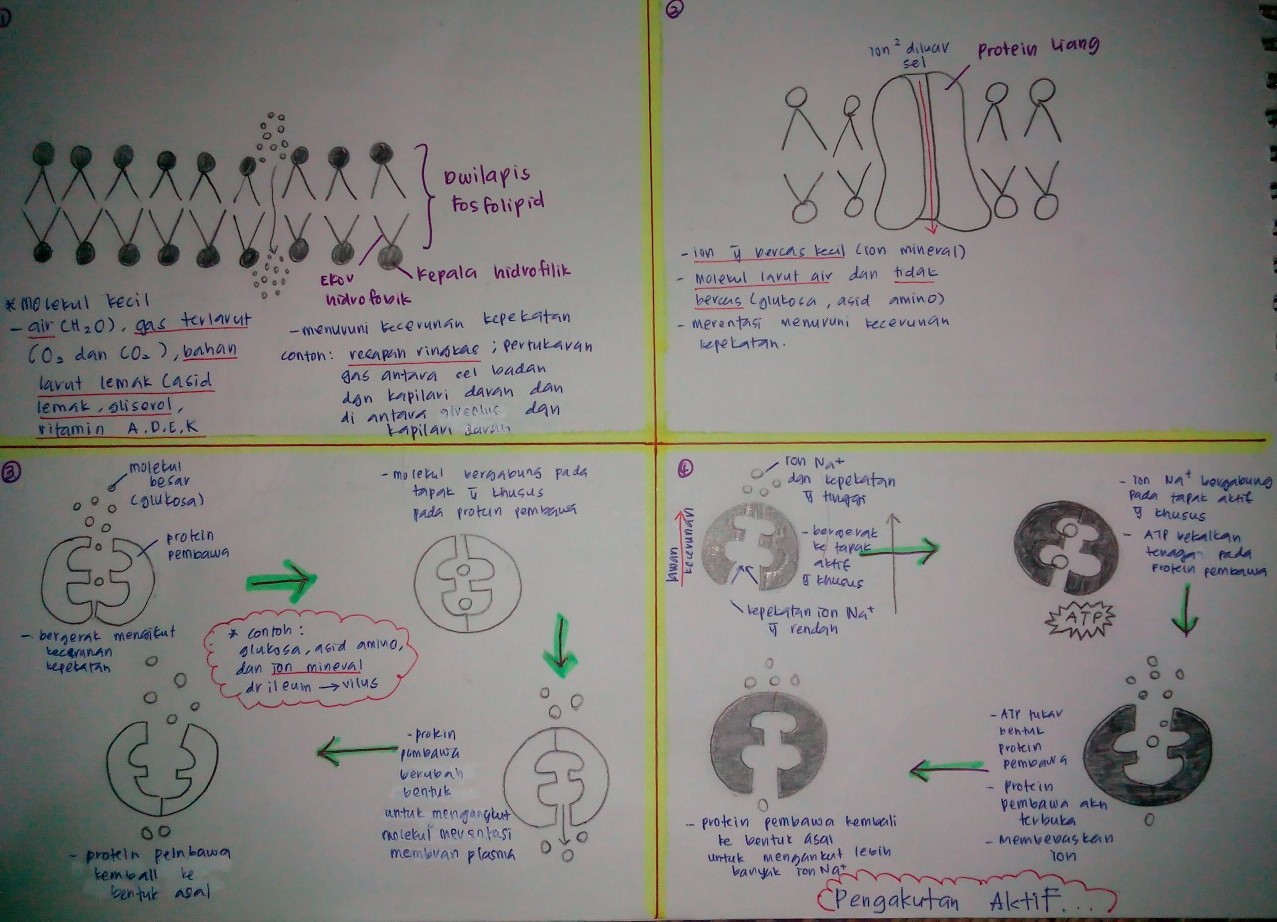 1
Dwilapis
fosfolipid
Kepala hidrofilik
Ekor
hidrofobik
* molekul kecil
- air (H2O), gas terlarut
(O2 dan CO2), bahan
larut lemak (asid
lemak, gliserol,
vitamin A,D,E,K
- menuruni kecerunan kepekatan
contoh: resapan ringkas; pertukaran
gas antara sel badan
dgn kapilari darah dan
di antara alveolus dgn
kapilari darah
2
ion² diluar
sel
Protein liang
- ion yg bercas kecil (ion mineral)
- molekul larut air dan tidak
bercas (glukosa, asid amino)
- merentasi menuruni kecerunan
kepekatan.
3
molekul
besar
(glukosa)
protein
pembawa
- bergerak mengikut
kecerunan
kepekatan
- molekul bergabung pada
tapak yg khusus
pada protein pembawa
* contoh:
glukosa, asid amino,
dan ion mineral
dr ileum → vilus
- protein
pembawa
berubah
bentuk
untuk mengangkut
molekul merentasi
membran plasma
- protein pembawa
kembali ke
bentuk asal
4
ion Na+
dgn kepekatan
yg tinggi
lawan
kecerunan
- bergerak
ke tapak
aktif
yg khusus
kepekatan ion Na+
yg rendah
- ion Na+ bergabung
pada tapak aktif
yg khusus
- ATP bekalkan
tenaga pada
protein pembawa
ATP
- ATP tukar
bentuk
protein
pembawa
- protein
pembawa akn
terbuka
- membebaskan
ion
- protein pembawa kembali
ke bentuk asal
untuk mengankut lebih
banyak ion Na+
Pengakutan Aktif...